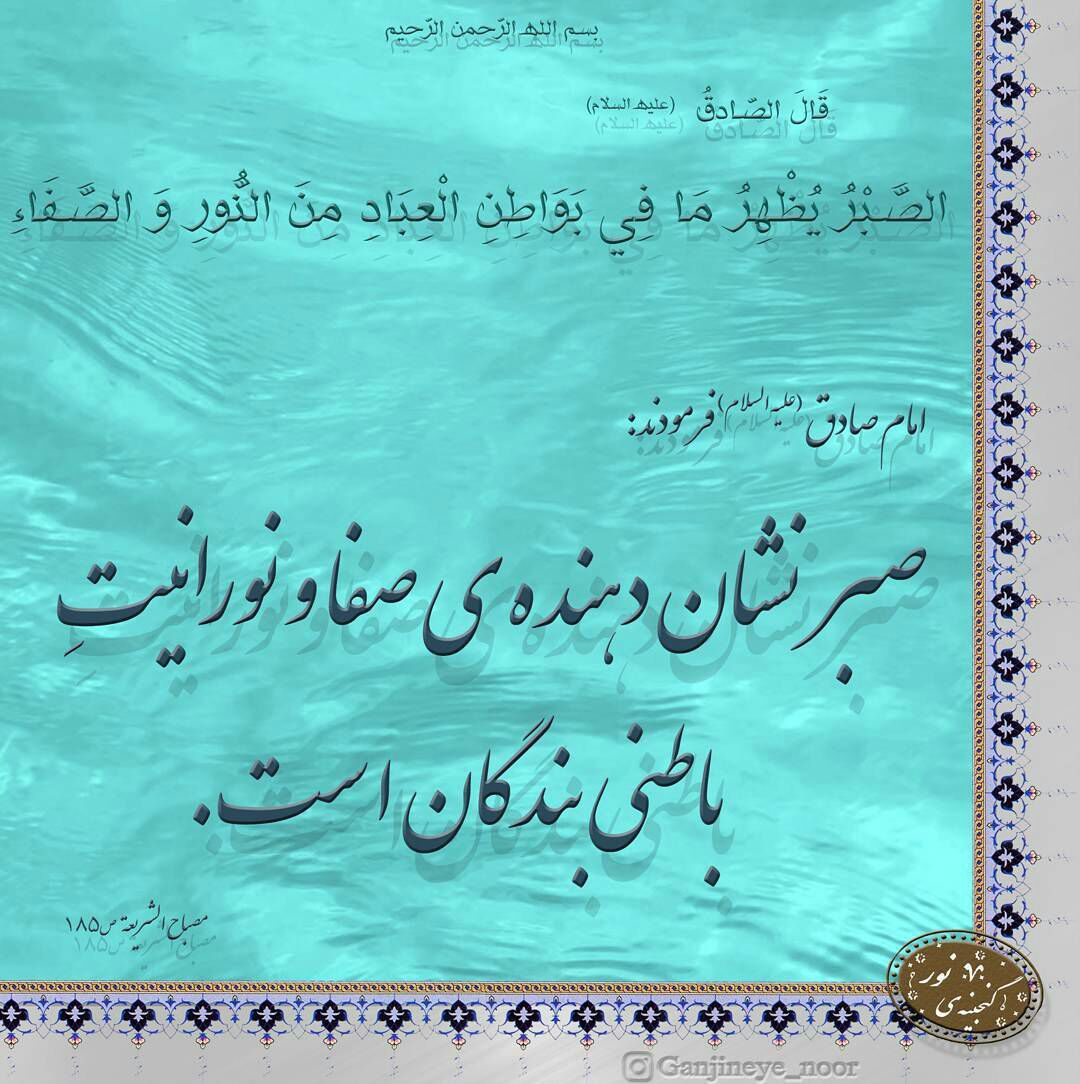 بسم الله الرّحمن الرّحیم
قَالَ الصّادقُ (علیه السلام)
الصَّبْرُ يُظْهِرُ مَا فِي بَوَاطِنِ الْعِبَادِ مِنَ النُّورِ وَ الصَّفَاءِ
امام صادق (علیه السلام) فرمودند:
صبر نشان دهنده ی صفا و نورانیتِ
باطنی بندگان است.
مصباح الشریعة ص۱۸۵
گنجینه ی نور
Ganjineye_noor